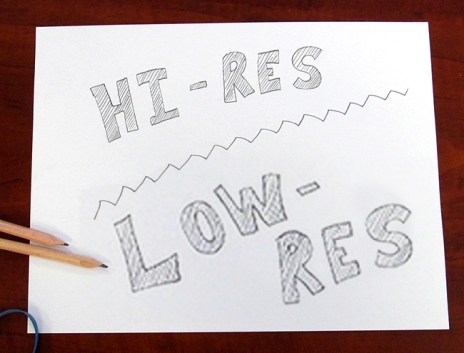 HI-RES
LOW-
RES